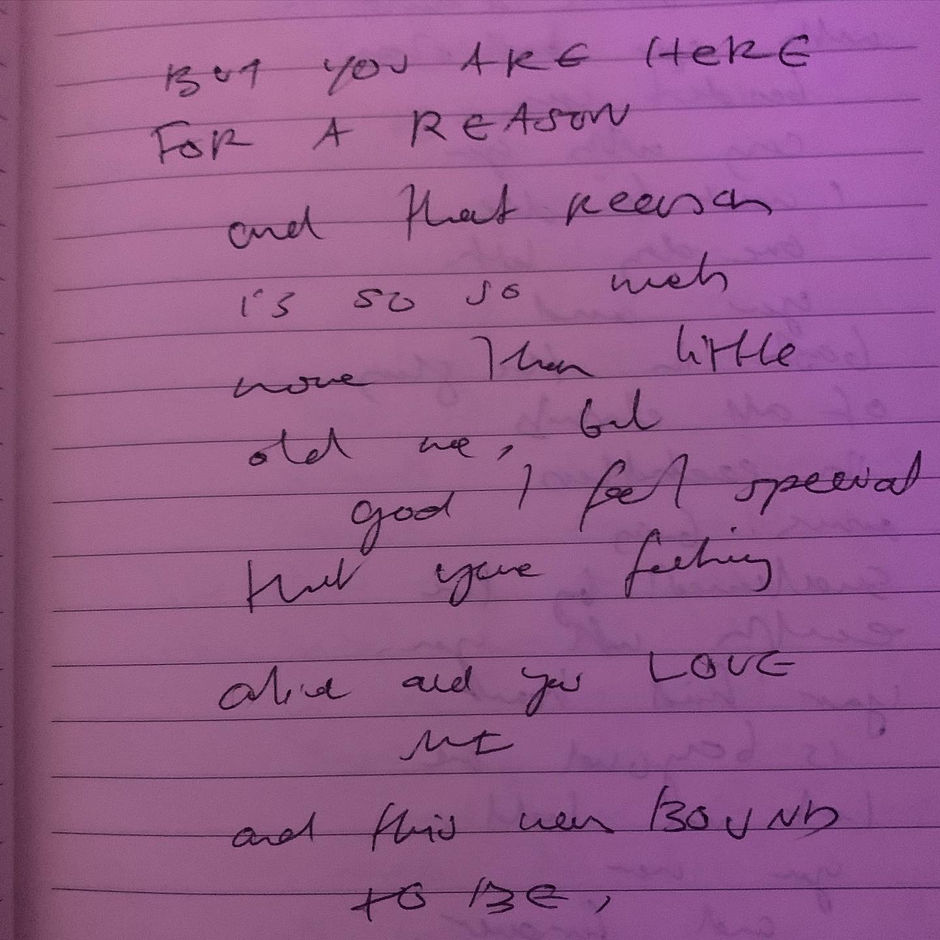 BUT YOU ARE HERE
FOR A REASON
and that reason
is so so much
more than little
old me, but
god I feel special
that you're feeling
alive and you LOVE
ME
and this was BOUND
TO BE,